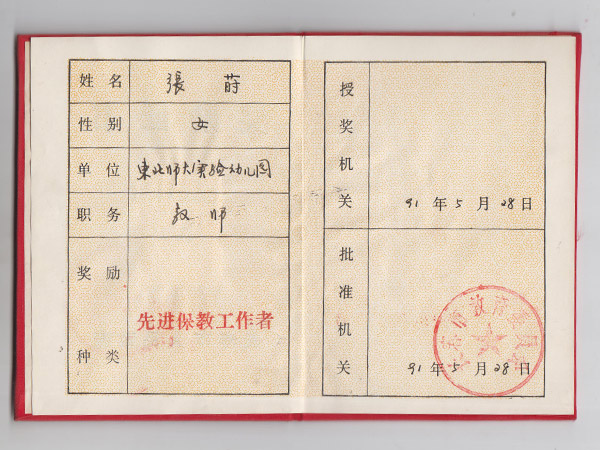 姓名 張莳
性别 女
单位 東北师大实验幼儿园
职务 教师
奖励种类 先进保教工作者
授奖机关
91年5月28日
批准机关
91年5月28日